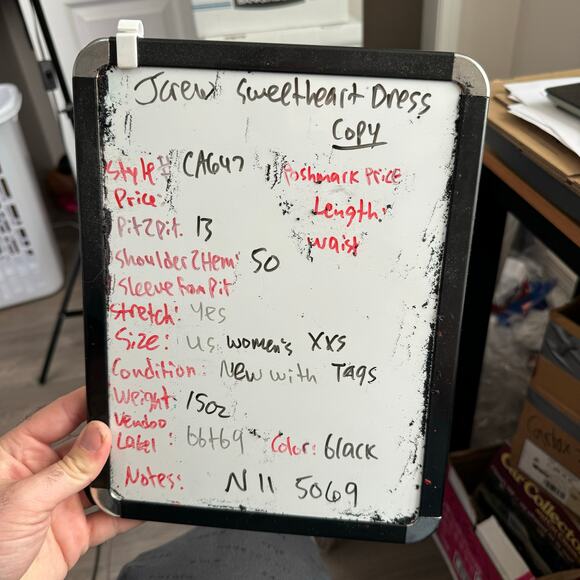 Jcrew Sweetheart Dress
Copy
Style# CA647
Poshmark Price
Price
Length:
Pit2pit 13
Waist
Shoulder2Hem: 50
Sleeve from Pit
Stretch: Yes
Size: US women's XXS
Condition: New with Tags
Weight 15oz
Vendoo
Label: 66+69 Color: black
Notes: N11 5069
Car Collector